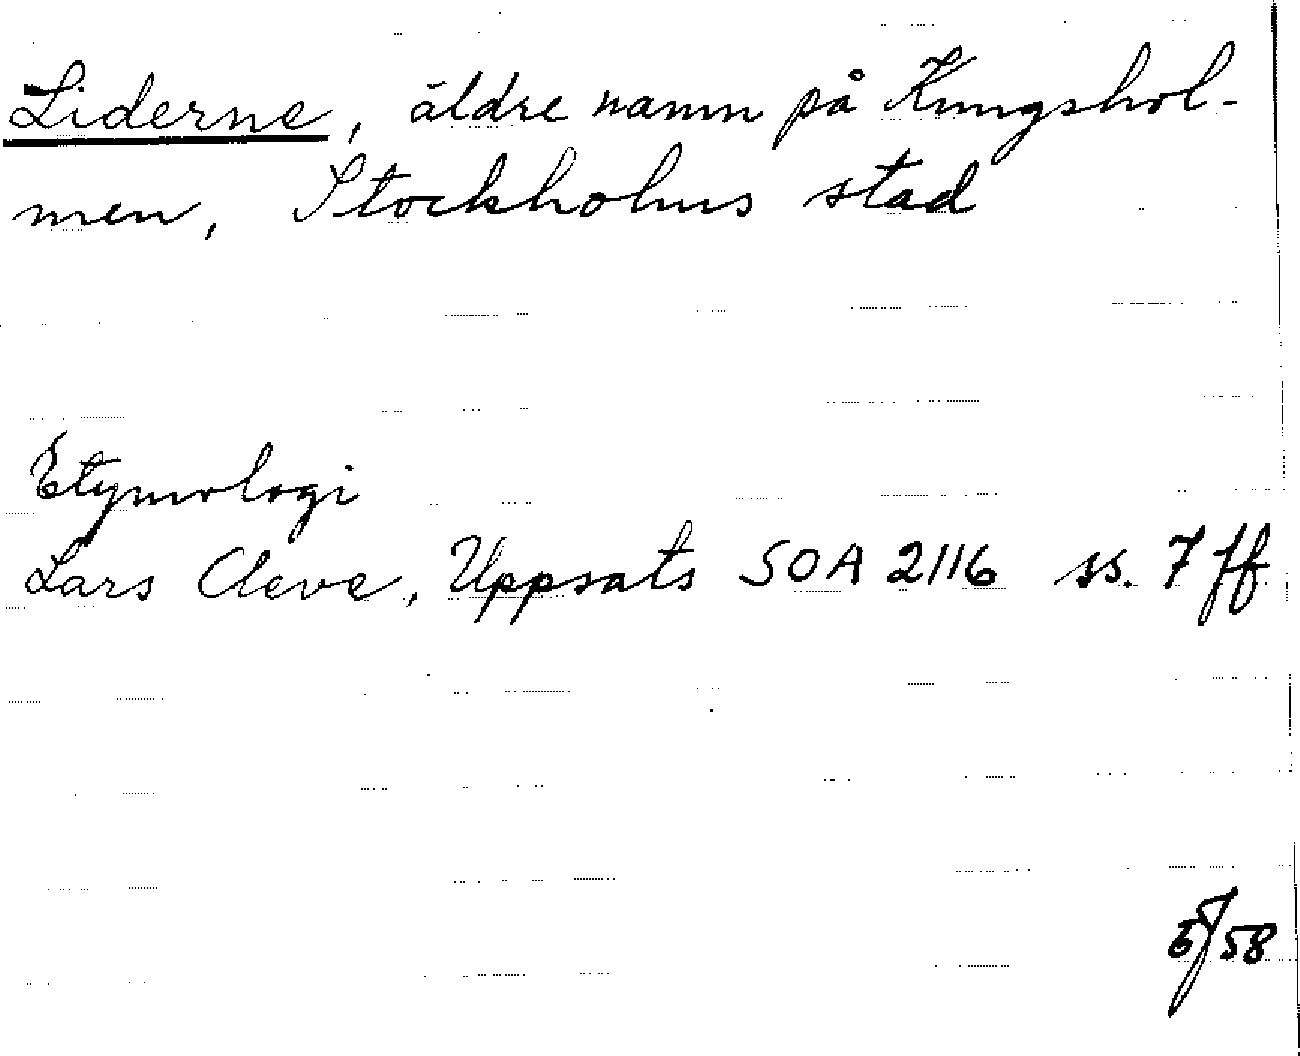 Liderne, äldre namn på Kungshol-
men, Stockholms stad
Etymologi
Lars Cleve, Uppsats SOA 2116 ss. 7 ff
/58